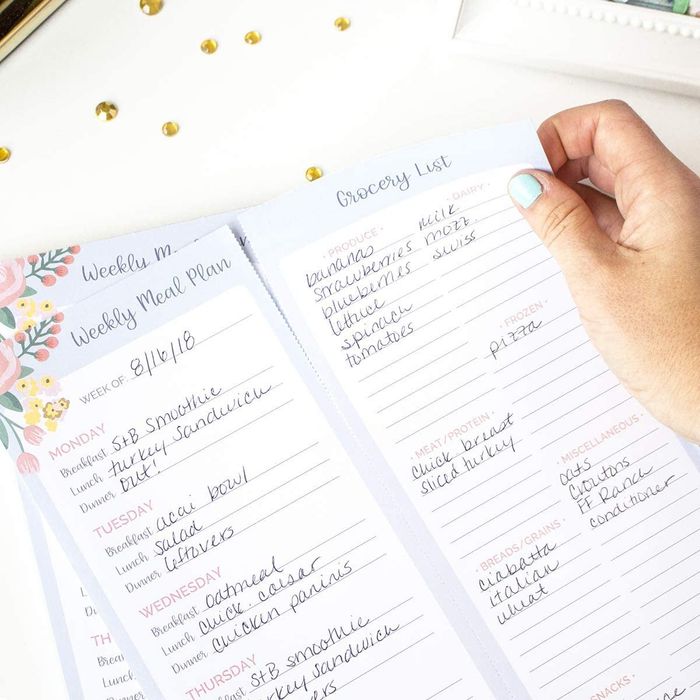 Weekly Me
Weekly Meal Plan
WEEK OF 8/16/18
MONDAY
Breakfast S+B Smoothie
Lunch turkey Sandwich
Dinner out!
TUESDAY
Breakfast acai bowl
Lunch salad
Dinner leftovers
WEDNESDAY
Breakfast oatmeal
Lunch chick. caesar
Dinner chicken paninis
THURSDAY
Breakfast S+B smoothie
turkey sandwich
TH
Grocery List
· PRODUCE ·
bananas
strawberries
blueberries
lettuce
spinach
tomatoes
· DAIRY ·
milk
mozz.
swiss
· FROZEN ·
pizza
· MEAT/PROTEIN ·
chick breast
sliced turkey
· MISCELLANEOUS ·
oats
croutons
FF Ranch
conditioner
· BREADS/GRAINS ·
ciabatta
italian
wheat
· SNACKS ·